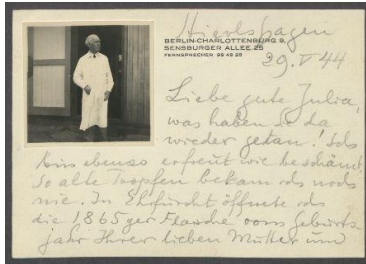 Hierlshagen
BERLIN-CHARLOTTENBURG 9,
SENSBURGER ALLEE 25
FERNSPRECHER 99 49 25
29. V 44
Liebe gute Julia,
was haben Sie da
wieder getan! Ich
bin ebenso erfreut wie beschämt.
So alte Tropfen bekam ich noch
nie. In Ehrfurcht öffnete ich
die 1865ger Flasche vom Geburts-
jahr Ihrer lieben Mutter und